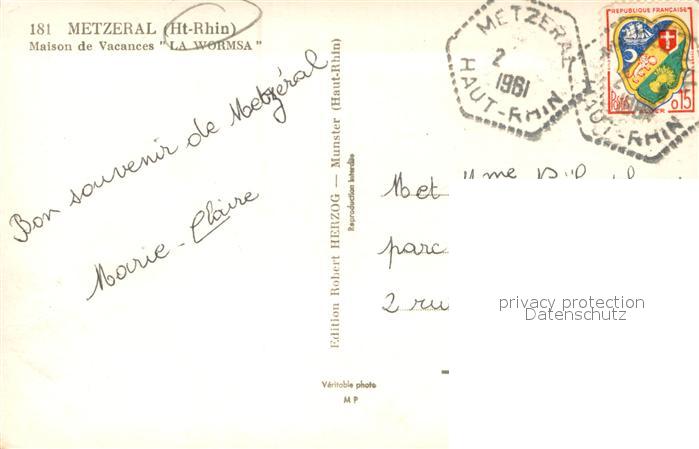 181 METZERAL (Ht-Rhin)
Maison de Vacances "LA WORMSA"
Bon souvenir de Metzéral
Marie-Claire
Edition Robert HERZOG — Munster (Haut-Rhin)
Reproduction interdite
Véritable photo
M P
METZERAL
2
1961
HAUT-RHIN
REPUBLIQUE FRANÇAISE
0,15
HAUT-RHIN
M et Mme
parc
2 ru
privacy protection
Datenschutz